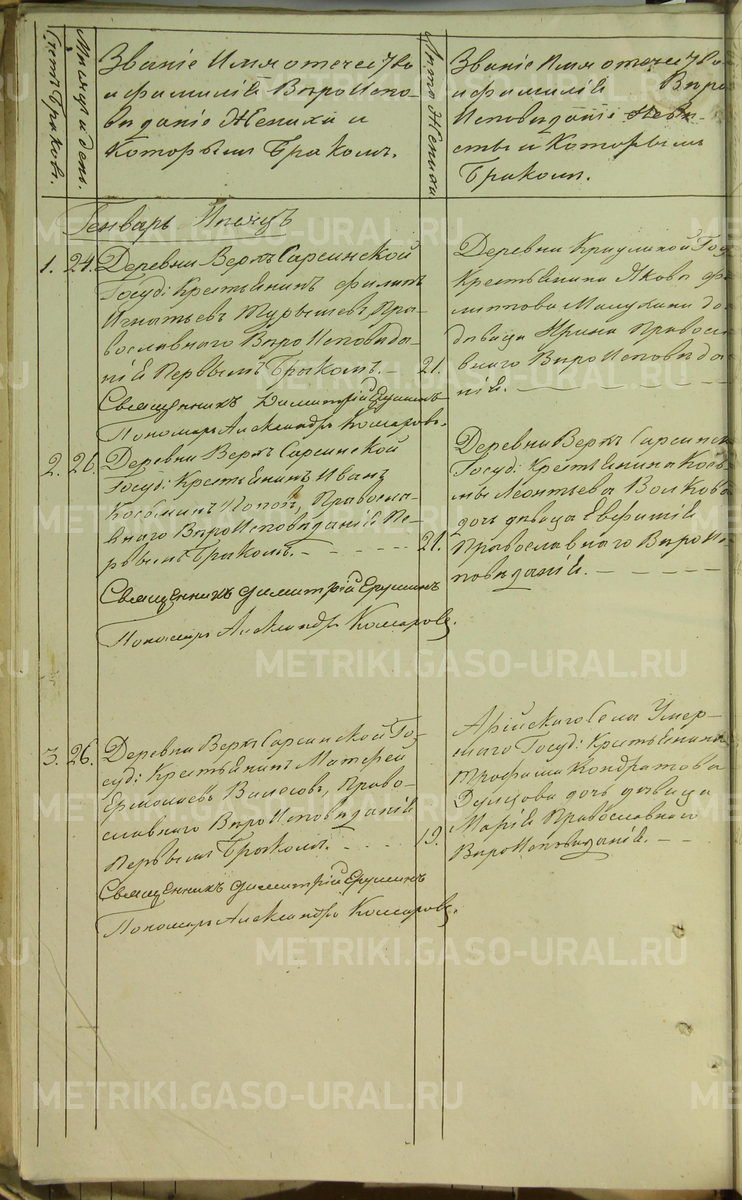 Счетъ Браковъ.
Месяцъ и день.
Званіе Имя отечество
и фамиліѣ Вѣроиспо-
виданіе Жениха и
Которымъ Бракомъ.
Лѣта Жениха
Званіе Имя отечество
и фамиліѣ Вѣро
Исповиданіе Невѣ-
сты и Которымъ
Бракомъ.
Генварь Месяцъ
1. 24. Деревни Верхъ Сарсинской
Госуд: Крестьянинъ Филипъ
Игнатьевъ Турышевъ Пра-
вославнаго Вѣроисповида-
ніѣ Первымъ Бракомъ. -
Священникъ Димитрій Ерушинъ
Пономарь Александръ Комаровъ.
21.
Деревни Го
Крестьянина Якова Фи
липпова дочь
дѣвица Ирина Правосла
внаго Вѣроисповида-
ніѣ.
2. 26. Деревни Верхъ Сарсинской
Госуд: Крестьянинъ Иванъ
Козьминъ Попов, Правосла-
внаго Вѣроисповиданіѣ Пе-
рвымъ Бракомъ.
Священникъ Димитрій Ерушинъ
Пономарь Александръ Комаровъ.
21.
Деревни Верхъ Сарсинск
Госуд: Крестьянина Козь
мы Леонтьева Волкова
дочь дѣвица Евфиміѣ
Православнаго Вѣроис
повиданіѣ.
3. 26. Деревни Верхъ Сарсинской Го-
суд: Крестьянинъ Матфей
Ермолаевъ Право-
славнаго Вѣроисповиданіѣ
Первымъ Бракомъ.
Священникъ Димитрій Ерушинъ
Пономарь Александръ Комаровъ.
19.
Арійскаго Села Умер-
шаго Госуд: Крестьянина
Трофима Кондратова
дочь дѣвица
Маріѣ Православнаго
Вѣроисповиданіѣ.
METRIKI.GASO-URAL.RU